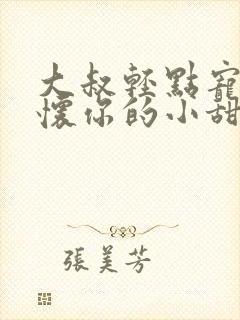 大叔輕點寵
懷你的小甜
張美芳